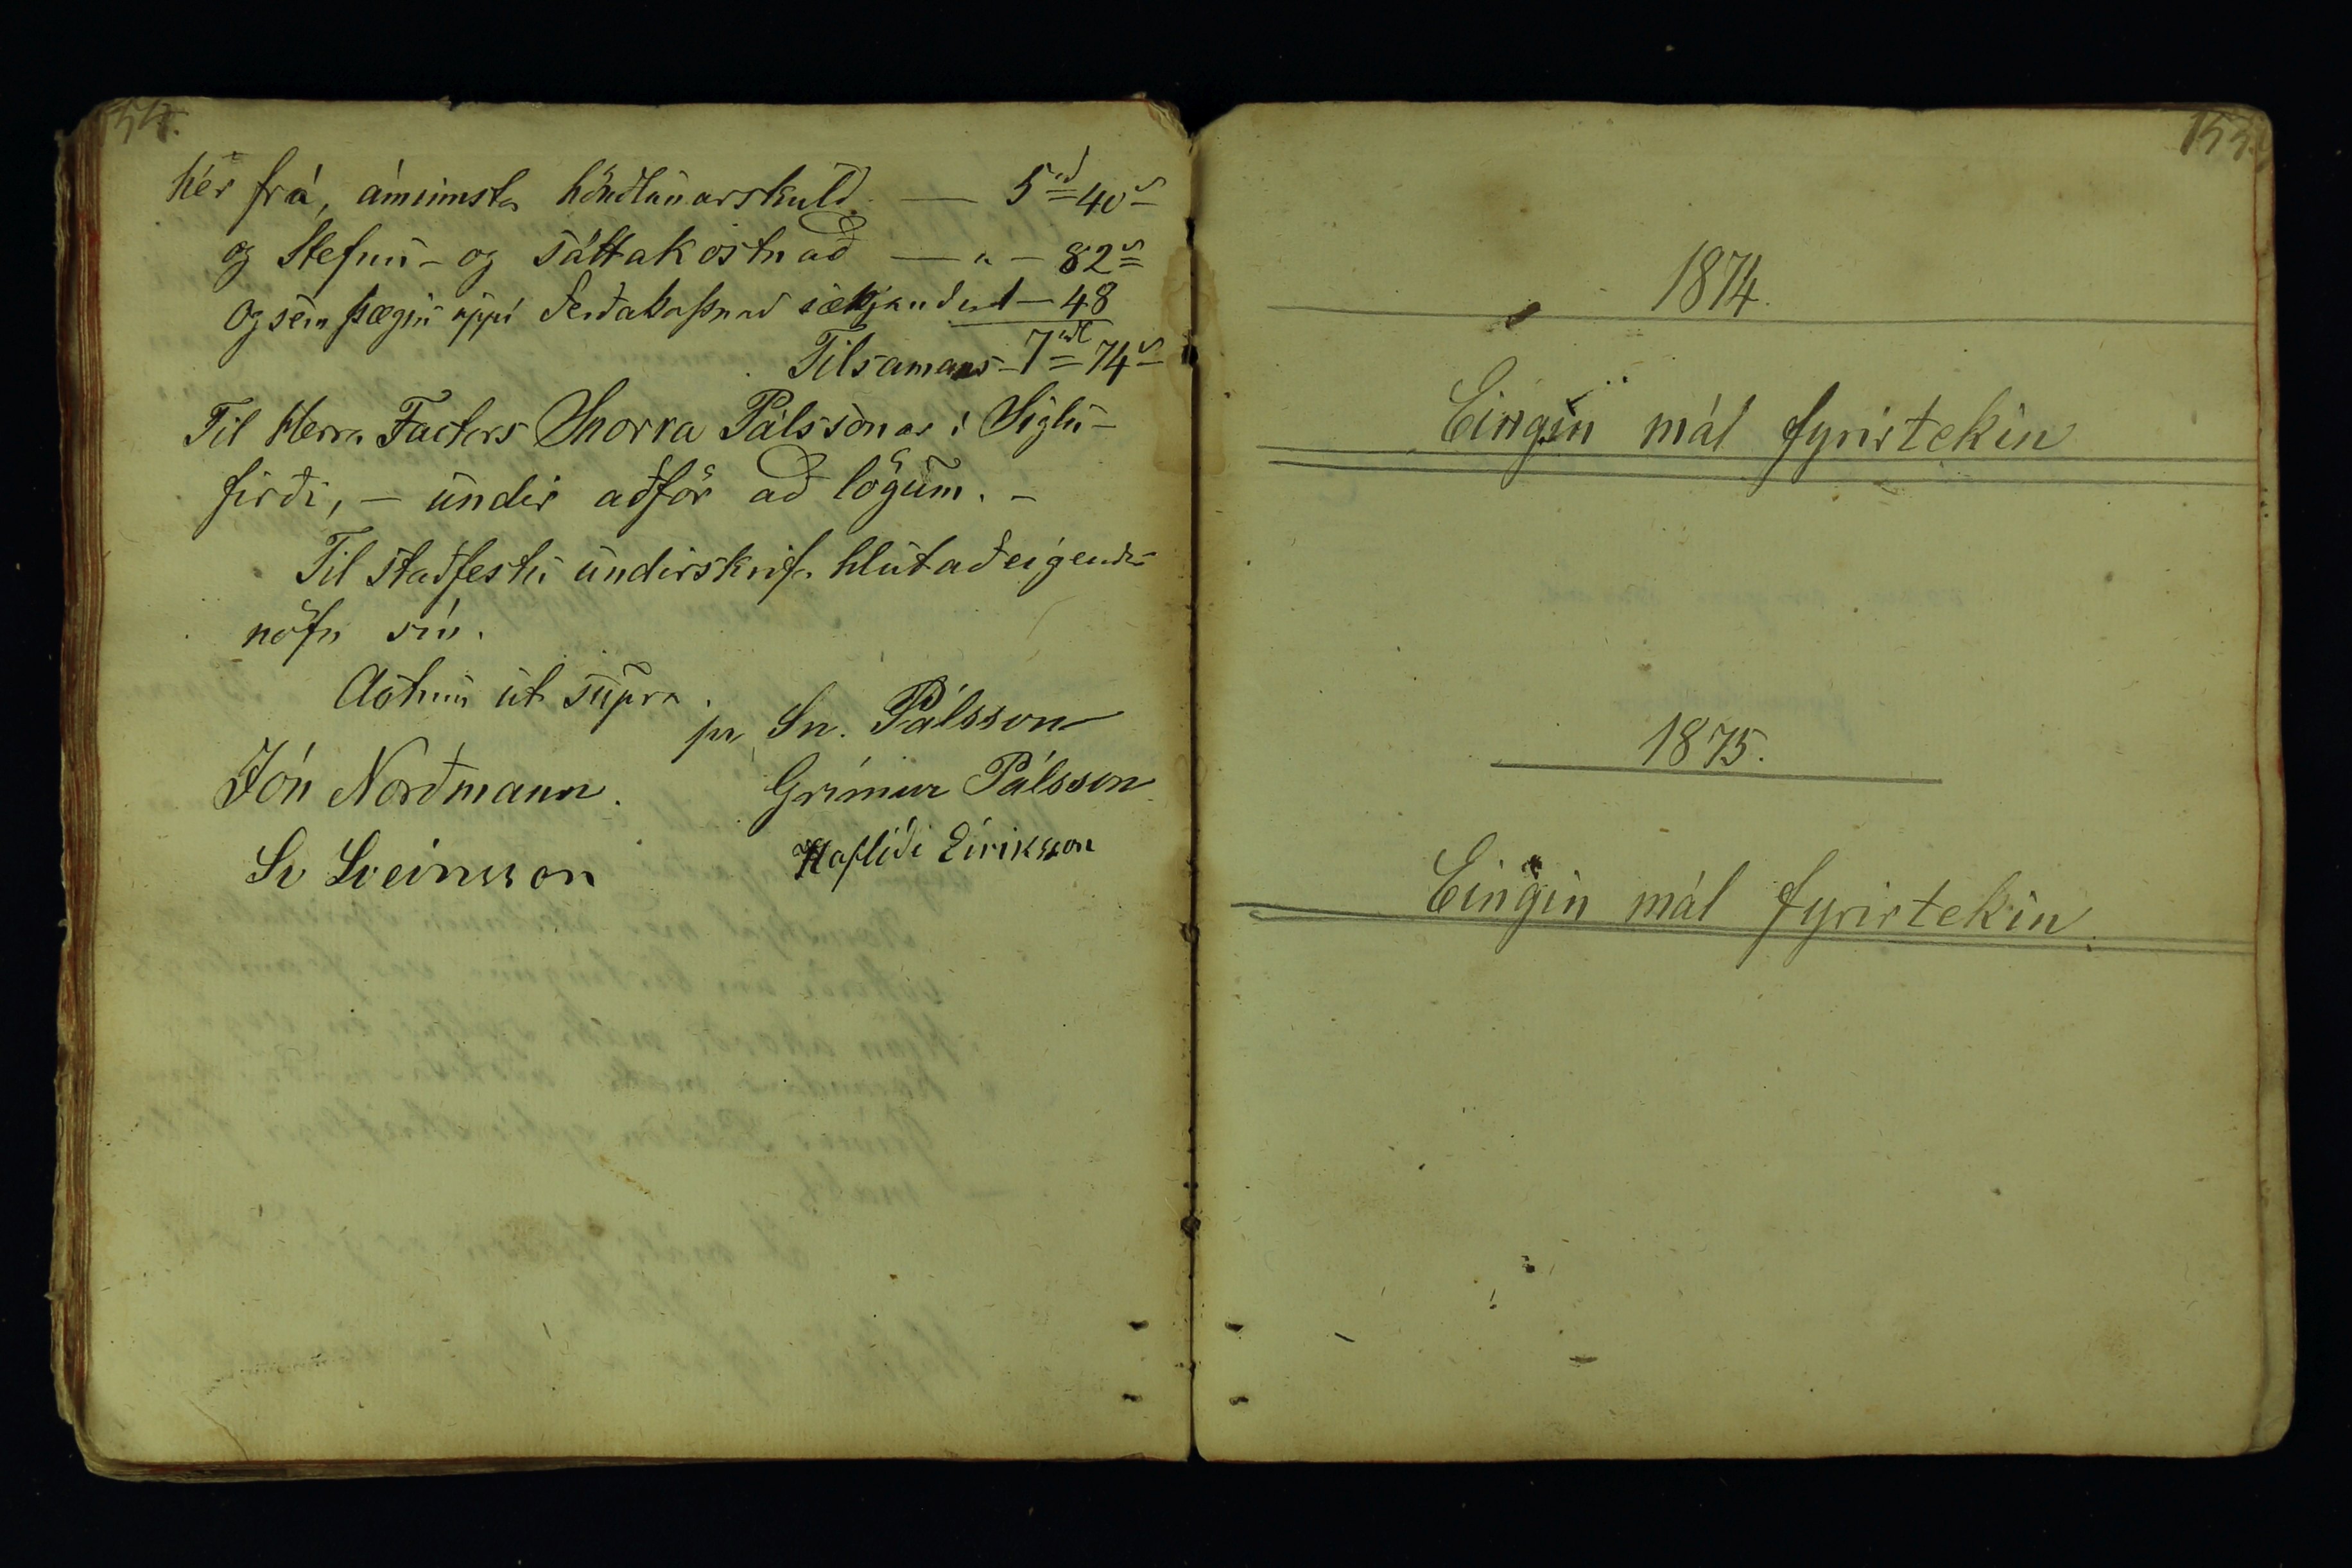 154.
hér frá, ámimsta höndlunarskuld — 5rd=40s
og Stefnu- og sáttakostnað — „ — 82s
og sem þægu uppí ferðakostnað sækjandas 1—48
Tilsamans—7rd=74s
Til Herra Factors Snorra Pálssonar í Siglu-
firði, — undir aðför að lögum. —
Til staðfestu undirskrifa hlutaðeigendur
nöfn sín.
Actum ut supra.
pr Sn. Pálsson
Jón Norðmann. Grímur Pálsson
Sv Sveinsson Hafliði Eiríksson
155.
1874.
Eingin mál fyrirtekin
1875.
Eingin mál fyrirtekin.